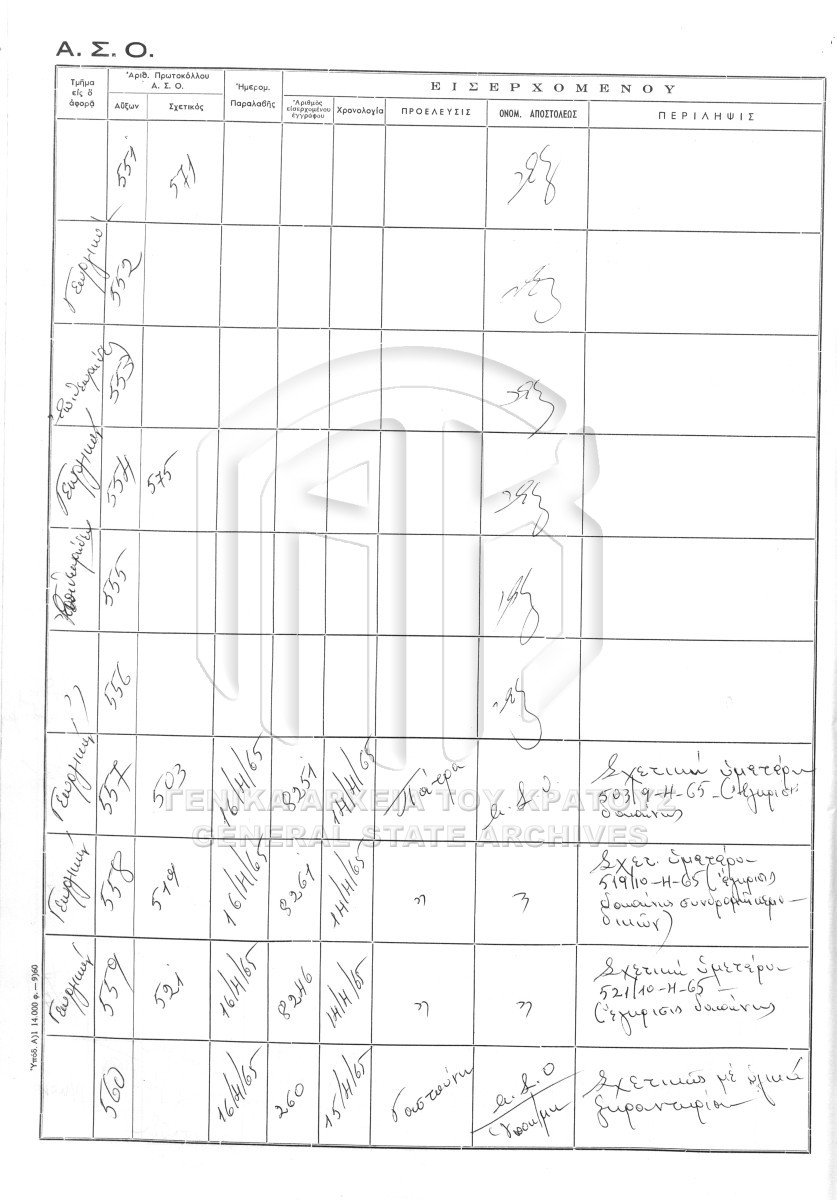 Α. Σ. Ο.
Τμῆμα εἰς ὃ ἀφορᾷ
Ἀριθ. Πρωτοκόλλου Α. Σ. Ο.
Αὔξων
Σχετικός
Ἡμερομ. Παραλαβῆς
ΕΙΣΕΡΧΟΜΕΝΟΥ
Ἀριθμὸς εἰσερχομένου ἐγγράφου
Χρονολογία
ΠΡΟΕΛΕΥΣΙΣ
ΟΝΟΜ. ΑΠΟΣΤΟΛΕΩΣ
ΠΕΡΙΛΗΨΙΣ
551 571
Γεωργικόν 552
553
Γεωργικόν 554 575
555
556
Γεωργικόν 557 503 16/4/65 8251 14/4/65 Πάτρα Α.Σ.Ο. Σχετικὴ ὑμετέρου
503/9-4-65 - (ἔγκρισις
δαπάνης
Γεωργικόν 558 519 16/4/65 8261 14/4/65 〃 〃 Σχετ. ὑμετέρου
519/10-4-65 (ἔγκρισις
δαπάνης
Γεωργικόν 559 521 16/4/65 8246 14/4/65 〃 〃 Σχετικὴ ὑμετέρου
521/10-4-65 -
(ἔγκρισις δαπάνης
560 16/4/65 260 15/4/65 Γαστούνη Α.Σ.Ο Σχετικῶς μὲ ὑλικὰ
ξηραντηρίου
Ὑπόδ. Α)1 14.000 φ. — 9)60
ΓΕΝΙΚΑ ΑΡΧΕΙΑ ΤΟΥ ΚΡΑΤΟΥΣ
GENERAL STATE ARCHIVES